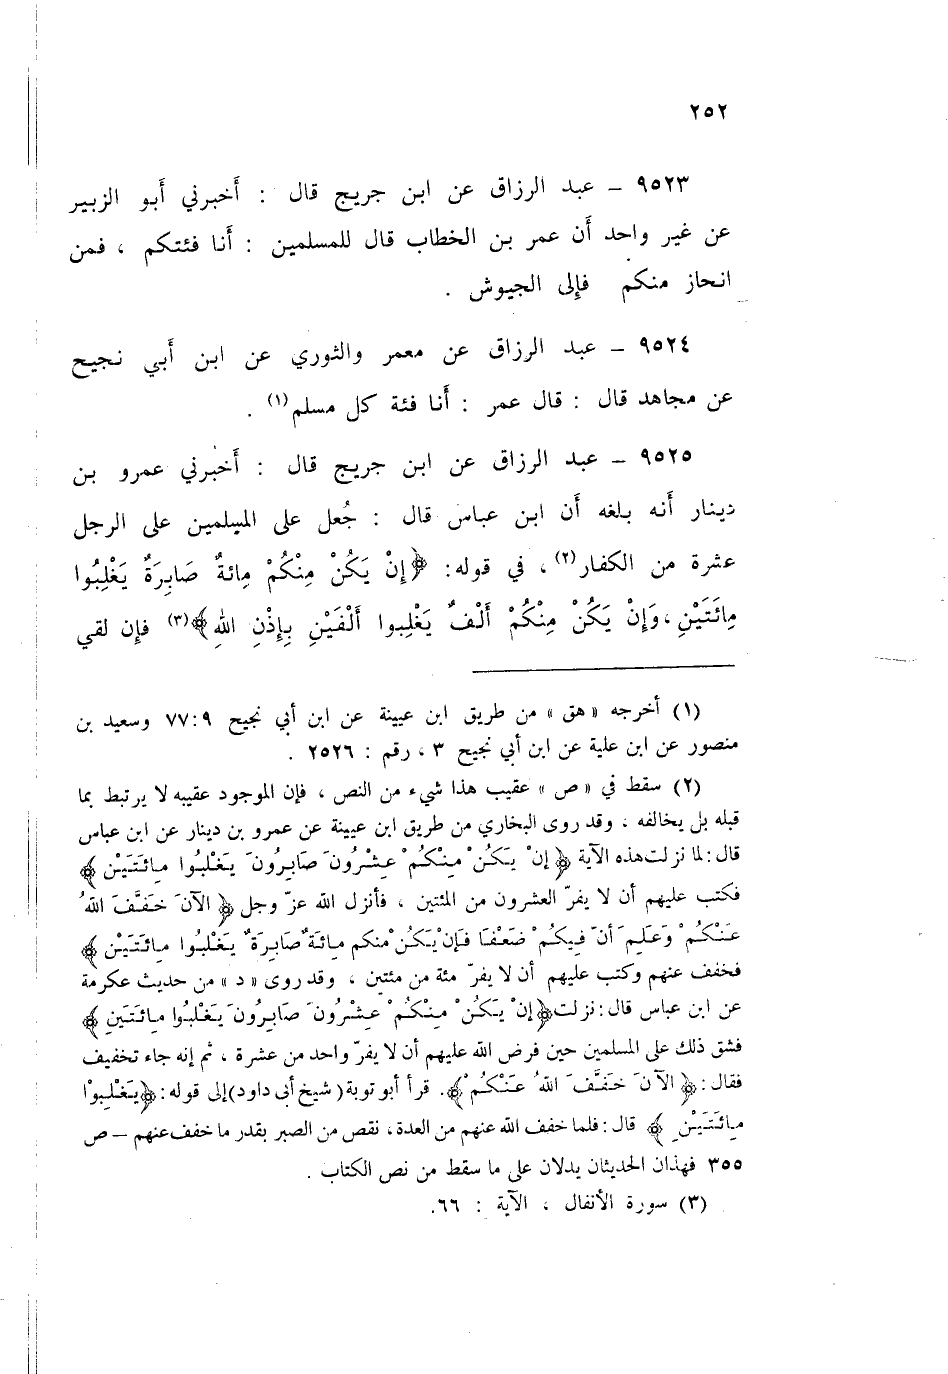 ٢٥٢
٩٥٢٣ – عبد الرزاق عن ابن جريج قال : أخبرني أبو الزبير
عن غير واحد أن عمر بن الخطاب قال للمسلمين : أنا فئتكم ، فمن
انحاز منكم فإلى الجيوش .
٩٥٢٤ – عبد الرزاق عن معمر والثوري عن ابن أبي نجيح
عن مجاهد قال : قال عمر : أنا فئة كل مسلم (١) .
٩٥٢٥ – عبد الرزاق عن ابن جريج قال : أخبرني عمرو بن
دينار أنه بلغه أن ابن عباس قال : جُعل على المسلمين على الرجل
عشرة من الكفار (٢) ، في قوله: ﴿إِنْ يَكُنْ مِنْكُمْ مِائةٌ صَابِرَةٌ يَغْلِبُوا
مِائَتَيْنِ ، وَإِنْ يَكُنْ مِنْكُمْ أَلْفٌ يَغْلِبوا أَلْفَيْنِ بِإِذْنِ اللهِ﴾ (٣) فإن لقي
(١) أخرجه «هق» من طريق ابن عيينة عن ابن أبي نجيح ٩:٧٧ وسعيد بن
منصور عن ابن علية عن ابن أبي نجيح ٣ ، رقم : ٢٥٢٦ .
(٢) سقط في «ص» عقيب هذا شيء من النص ، فإن الموجود عقيبه لا يرتبط بما
قبله بل يخالفه ، وقد روى البخاري من طريق ابن عيينة عن عمرو بن دينار عن ابن عباس
قال : لما نزلت هذه الآية ﴿إِنْ يَكُنْ مِنْكُمْ عِشْرُونَ صَابِرُونَ يَغْلِبُوا مِائَتَيْنِ﴾
فكتب عليهم أن لا يفرّ العشرون من المئتين ، فأنزل الله عزّ وجل ﴿الآنَ خَفَّفَ اللهُ
عَنْكُمْ وَعَلِمَ أَنَّ فِيكُمْ ضَعْفَا فَإِنْ يَكُنْ منكم مِائَةٌ صَابِرَةٌ يَغْلِبُوا مِائَتَيْنِ﴾
فخفف عنهم وكتب عليهم أن لا يفرّ مئة من مئتين ، وقد روى «د» من حديث عكرمة
عن ابن عباس قال : نزلت ﴿إِنْ يَكُنْ مِنْكُمْ عِشْرُونَ صَابِرُونَ يَغْلِبُوا مِائَتَيْنِ﴾
فشق ذلك على المسلمين حين فرض الله عليهم أن لا يفرّ واحد من عشرة ، ثم إنه جاء تخفيف
فقال : ﴿الآنَ خَفَّفَ اللهُ عَنْكُمْ﴾. قرأ أبو توبة (شيخ أبى داود) إلى قوله : ﴿يَغْلِبُوا
مِائَتَيْنِ﴾ قال : فلما خفف الله عنهم من العدة، نقص من الصبر بقدر ما خفف عنهم – ص
٣٥٥ فهذان الحديثان يدلان على ما سقط من نص الكتاب .
(٣) سورة الأنفال ، الآية : ٦٦.